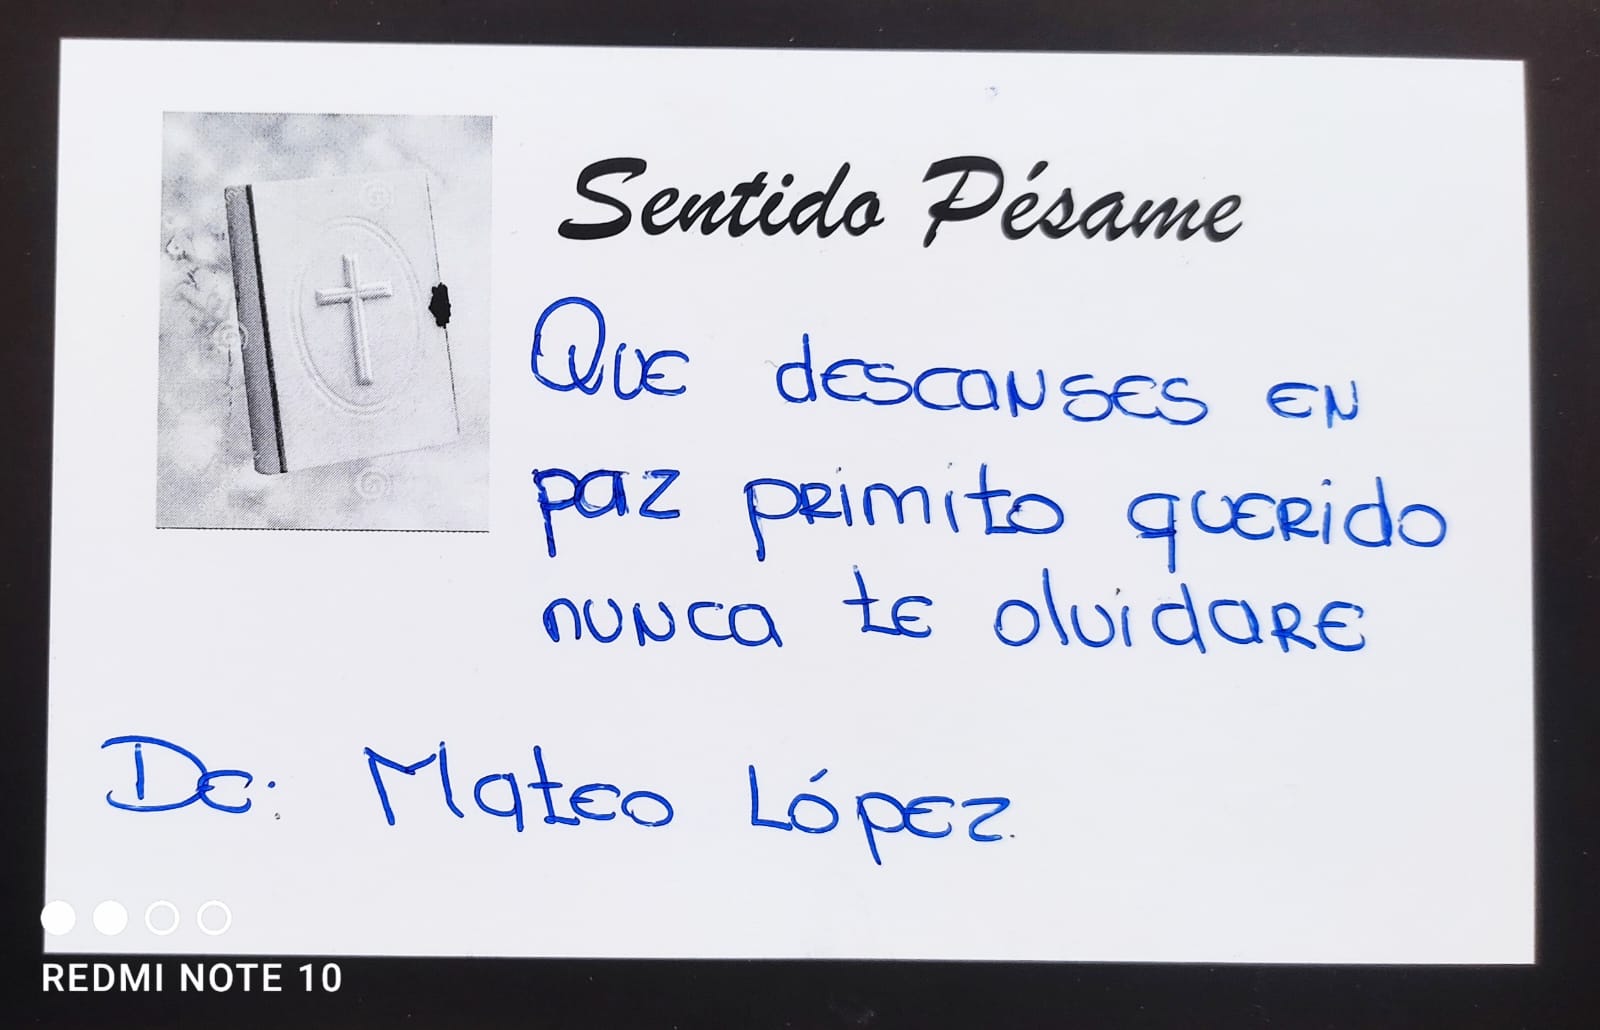 Sentido Pésame
Que descanses en
paz primito querido
nunca te olvidare
De: Mateo López.
REDMI NOTE 10